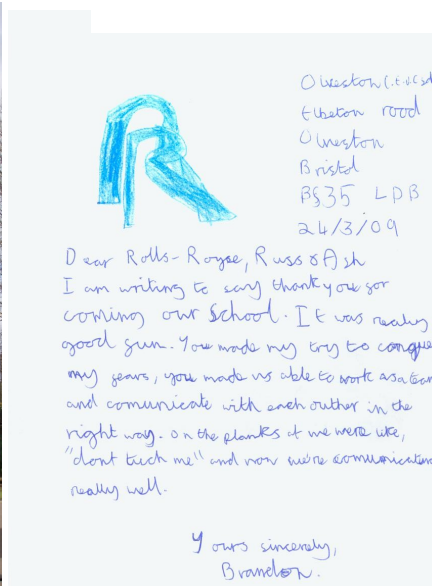 Olveston
Elbeton rood
Olveston
Bristol
BS35 LDB
24/3/09
Dear Rolls-Royse, Russ & Ash
I am writing to say thank you for
coming our School. It was really
good fun. You made my try to conque
my fears, you made us able to work as a team
and comunicate with each outher in the
right way. On the planks it we were like,
"dont tuch me" and now we're comunicaten
really well.
Yours sincerely,
Brandon.